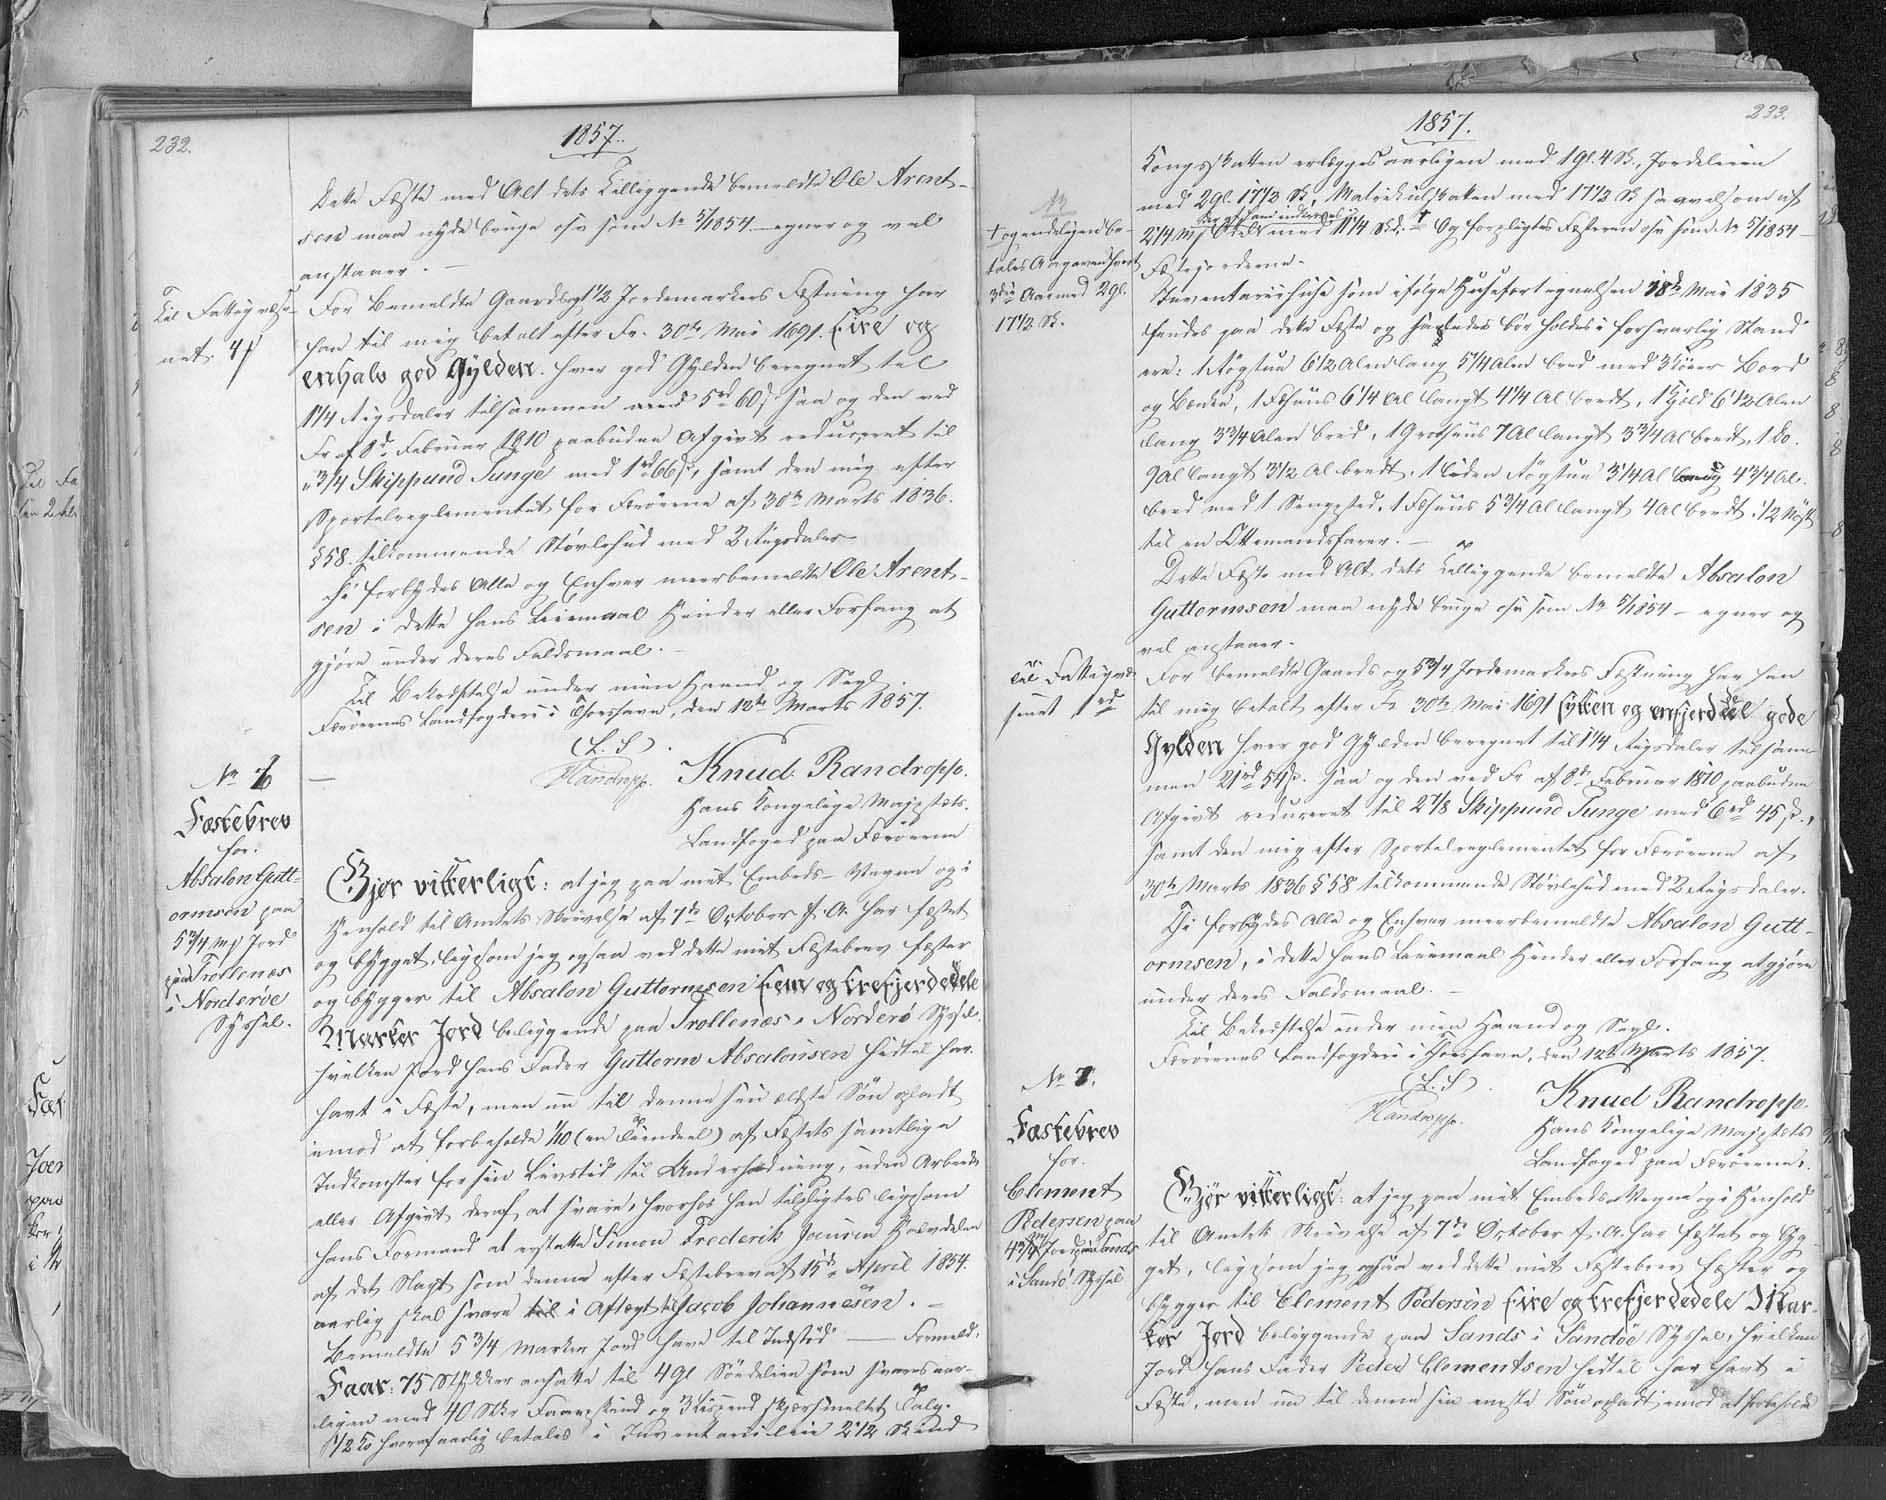 232.
1857.
Dette Fæste med Alt dets Tilliggende bemeldte Ole Arent-
sen maa nyde bruge osv som No 5/1854. — egner og vel
anstaaer. —
Til Fattigvæse-
net 4
For Bemeldte Gaards og 1 1/2 Jordemarkers Fæstning har
han til mig betalt efter Fr. 30te Mai 1691. Fire og
enhalv god Gylden. hver god Gylden beregnet til
1 1/4 Rigsdaler tilsammen med 5rd 60 s saa og den ved
Fr af 8de Februar 1810 paabudne Afgivt reduceret til
3/4 Skippund Tunge med 1rd 66 s, samt den mig efter
Sportelreglementet for Færöerne af 30te Marts 1836.
§ 58. tilkommende Støvlehud med 2 Rigsdaler
Thi forbydes Alle og Enhver meerbemeldte Ole Arent-
sen i dette hans Leiemaal Hinder eller Forfang at
gjøre under deres Faldsmaal. —
Til Bekræftelse under min Haand og Segl.
Færöernes Landfogderi i Thorshavn, den 12te Marts 1857.
(L. S.)
Randropp. Knud Randropp.
Hans Kongelige Majestæts.
Landfoged paa Færöerne
No 6
Fæstebrev
for.
Absalon Gutt-
ormsen paa
5 3/4 Mk Jord
paa Trollenæs
i Norderöe
Syssel.
Gjør vitterligt: at jeg paa mit Embeds-Vegne og i
Henhold til Amtets Skrivelse af 7de October f. A. har fæstet
og bygget, ligesom jeg ogsaa ved dette mit Fæstebrev fæster
og bygger til Absalon Guttormsen Fem og trefjerdedele
Marker Jord beliggende paa Trollenæs i Norderö Syssel.
hvilken Jord hans Fader Guttorm Absalonsen hidtil har
havt i Fæste, men nu til denne sin ældste Søn opladt
imod at forbeholde 1/10 (en Tiendeel) af Fæstets samtlige
Indkomster for sin Livstid til Underholdning, uden Arbeide
eller Afgivt deraf at svare, hvorhos han tilpligtes ligesom
hans Formand at erstatte Simon Frederik Joensen Halvdelen
af det Slagt som denne efter Fæstebrev af 15de April 1854.
aarlig skal svare til i Aftægt til Jacob Johannesen. —
Bemeldte 5 3/4 Marker Jord have til Indstød — Formeld.
Faar: 75 Stykker ansatte til 4 Gl Söndeleie som svares aar-
ligen med 40 Stkr Faareskind og 3 Lispund skjærsmeltet Talg.
1/2 Ko hvoraf aarlig betales i Inventariileie 2 1/2 Skind
233.
1857.
Kongsskatten erlægges aarligen med 1 Gl. 4 Sk., Jordeleien
med 2 Gl. 17 1/2 Sk, Matrikulskatten med 17 1/2 Sk saavelsom af
2 1/4 Mk Odel med 11 1/4 Skd. † Og forpligtes Fæsteren osv som No 5/1854 —
NB
† og endeligen be-
tales Aargaven hvert
3die Aar med 2 Gl.
17 1/2 Sk.
Fæstejorderne.
Inventariihuse som ifølge Husefortegnelsen 18de Mai 1835
findes paa dette Fæste og saaledes bør holdes i forsvarlig Stand
ere: 1 Rögstue 6 1/2 Alen lang 5 1/4 Alen bred med 3 Köier Bord
og Bænke, 1 Fæhuus 6 1/4 Al langt 4 1/4 Al bredt, 1 Hjeld 6 1/2 Alen
lang 3 3/4 Alen bred, 1 Grothuus 7 Al langt 3 3/4 Al bredt, 1 do.
9 Al langt 3 1/2 Al bredt. 1 liden Rögstue 3 1/4 Al lang 4 3/4 Al.
bred med 1 Sengested. 1 Fæhuus 5 3/4 Al langt 4 Al bredt. 1/2 Nöst
til en Ottemandsfarer. —
Dette Fæste med Alt dets Tilliggende bemeldte Absalon
Guttormsen maa nyde bruge osv som No 5/1854 — egner og
vel anstaaer.
Til Fattigvæ-
senet 1 rd
For bemeldte Gaards og 5 3/4 Jordemarkers Fæstning har han
til mig betalt efter Fr 30te Mai 1691 sytten og enfjerdedel gode
Gylden hver god Gylden beregnet til 1 1/4 Rigsdaler tilsam-
men 21rd 54 s. saa og den ved Fr af 8de Februar 1810 paabudne
Afgivt reduceret til 2 7/8 Skippund Tunge med 6rd 45 s.,
samt den mig efter Sportelreglementet for Færöerne af
30te Marts 1836 § 58 tilkommende Støvlehud med 2 Rigsdaler.
Thi forbydes Alle og Enhver meerbemeldte Absalon Gutt-
ormsen, i dette hans Leiemaal Hinder eller Forfang at gjøre
under deres Faldsmaal. —
Til Bekræftelse under min Haand og Segl.
Færöernes Landfogderi i Thorshavn, den 12te Marts 1857.
(L. S.)
Randropp. Knud Randropp.
Hans Kongelige Majestæts
Landfoged paa Færöerne.
No 7.
Fæstebrev
for.
Clement
Pedersen paa
4 3/4 Mk Jord paa Sands
i Sandö Syssel
Gjør vitterligt: at jeg paa mit Embeds Vegne og i Henhold
til Amtets Skrivelse af 7de October f. A. har fæstet og byg-
get, ligesom jeg ogsaa ved dette mit Fæstebrev fæster og
bygger til Clement Pedersen Fire og trefjerdedele Mar-
ker Jord beliggende paa Sands i Sandöe Syssel, hvilken
Jord hans Fader Peder Clementsen hidtil har havt i
Fæste, men nu til denne sin eneste Søn opladt imod at forbeholde